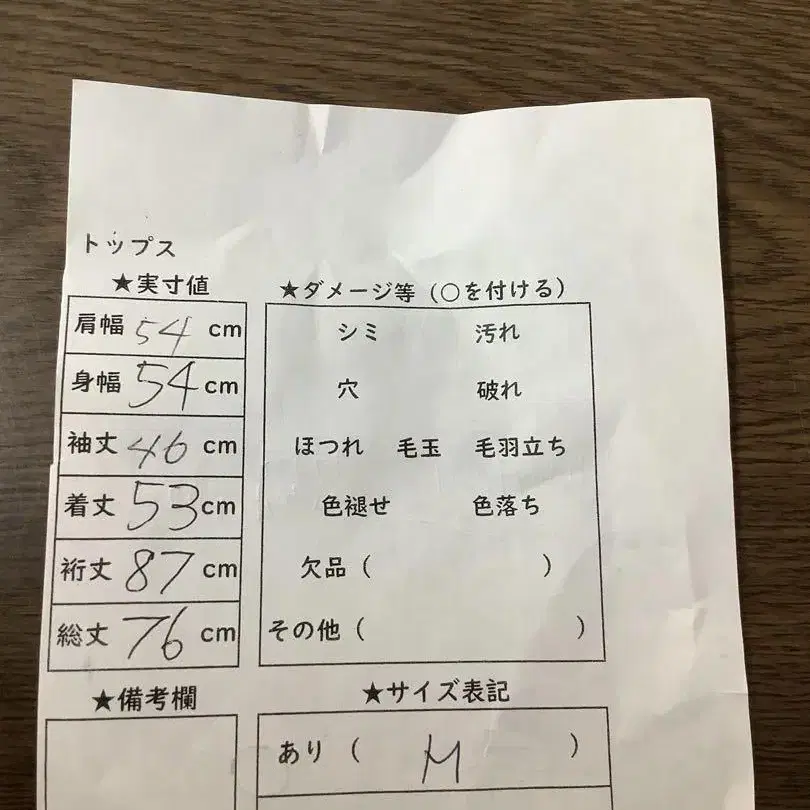 トップス
★実寸値
肩幅 54 cm
身幅 54 cm
袖丈 46 cm
着丈 53 cm
裄丈 87 cm
総丈 76 cm
★ダメージ等（○を付ける）
シミ 汚れ
穴 破れ
ほつれ 毛玉 毛羽立ち
色褪せ 色落ち
欠品（ ）
その他（ ）
★備考欄
★サイズ表記
あり（ M ）